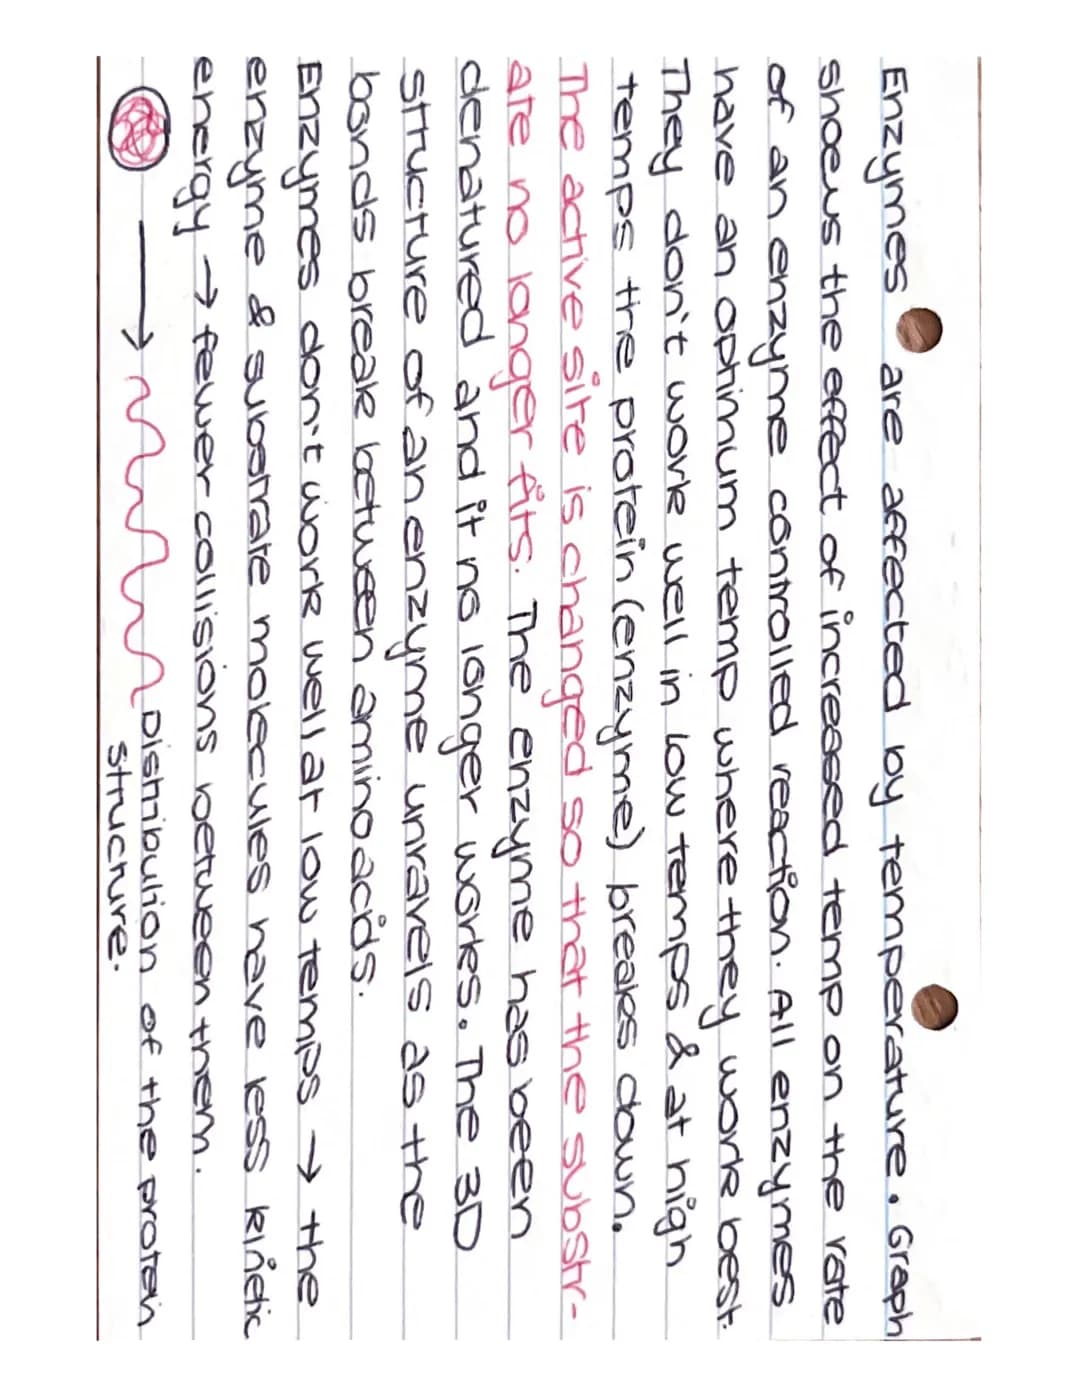 Enzymes are affected by temperature. Graph
shows the effect of increased temp on the rate
of an enzyme controlled reaction. All enzymes
have an optimum temp where they work best.
They don't work well in low temps & at high
temps the protein (enzyme) breaks down.
The active site is changed so that the substr-
ate no longer fits. The enzyme has been
denatured and it no longer works. The 3D
structure of an enzyme unravels as the
bonds break between amino acids.
Enzymes don't work well at low temps → the
enzyme & substrate molecules have less kinetic
energy → fewer collisions between them.
Distribution of the protein
structure.